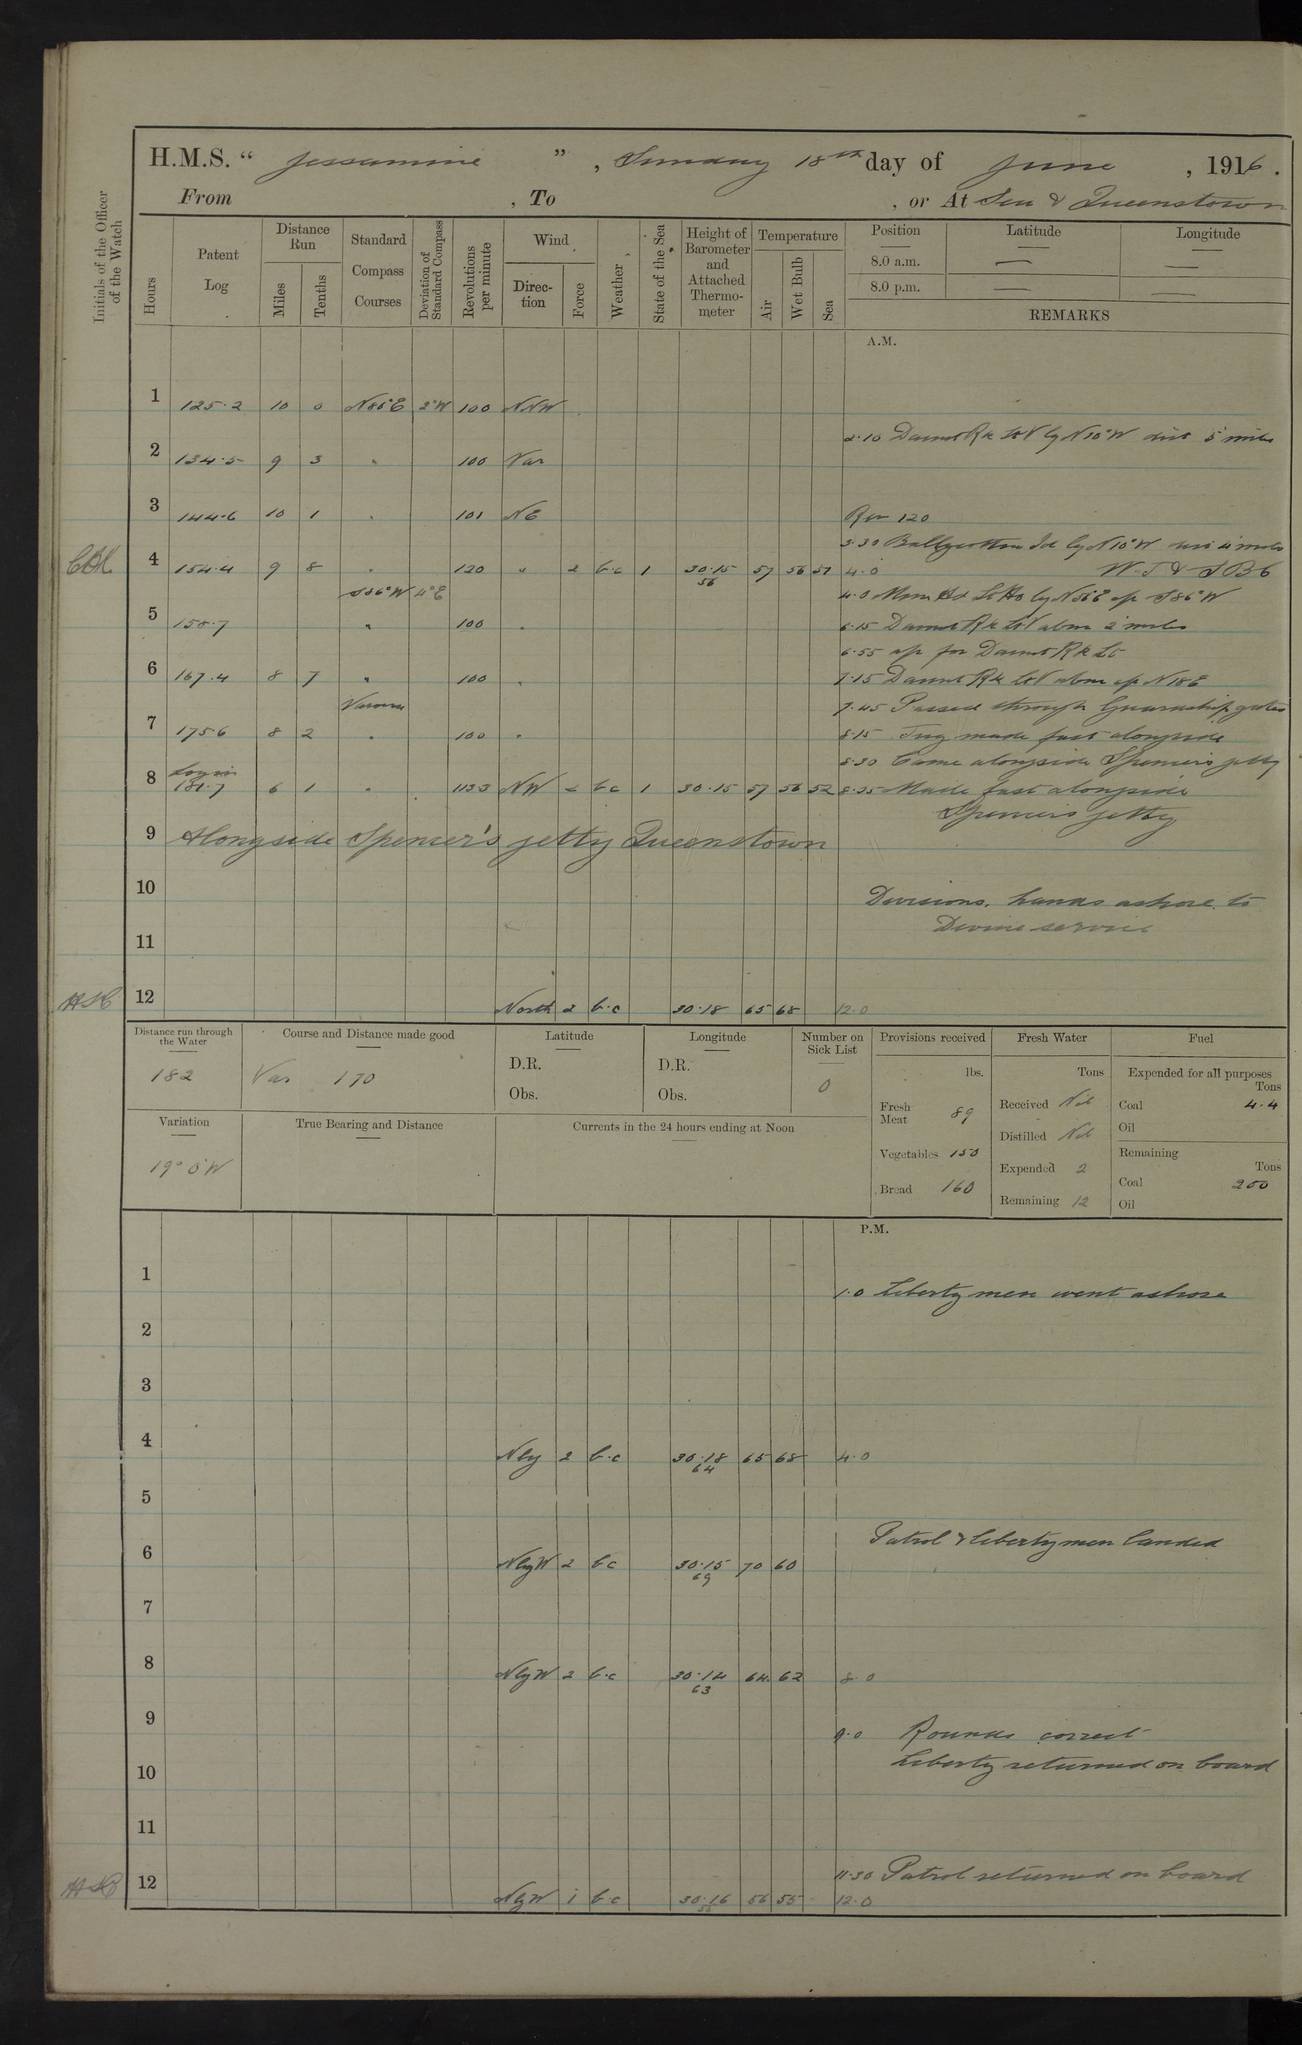 H.M.S. “ Jessamine ” , Sunday 18th day of June , 1916.
From , To , or At Sea & Queenstown
Initials of the Officer of the Watch
Hours
Patent Log
Distance Run
Miles
Tenths
Standard Compass Courses
Deviation of Standard Compass
Revolutions per minute
Wind
Direction
Force
Weather
State of the Sea
Height of Barometer and Attached Thermometer
Temperature
Air
Wet Bulb
Sea
Position Latitude Longitude
8.0 a.m. — —
8.0 p.m. — —
REMARKS
A.M.
1 125.2 10 0 N86°E 2°W 100 NNW
2.10 Daunt Rk Lt V by N10°W dist 5 miles
2 134.5 9 3 " 100 Var
3 144.6 10 1 " 101 NE Rev 120
3.30 Ballycotton Id by N10°W dist 4 miles
4 154.4 9 8 " 120 " 2 b.c 1 30.15 57 56 51 4.0 W.T & S B 6
56
S36°W 4°E 4.0 Mine Hd Lt Ho by N56E a/c S86°W
5 158.7 " 100 " 6.15 Daunt Rk Lt V abm 2 miles
6.55 a/c for Daunt Rk Lt
6 167.4 8 7 " 100 " 7.15 Daunt Rk Lt V abm a/c N18E
Various 7.45 Passed through Guardship gates
7 175.6 8 2 " 100 " 8.15 Tug made fast alongside
8.30 Came alongside Spencers jetty
8 181.7 6 1 " 113.3 NW 2 b c 1 30.15 57 56 52 8.35 Made fast alongside
Spencers jetty
9 Alongside Spencer's jetty Queenstown
10 Divisions. hands ashore to
Divine service
11
12 North 2 b.c 30.18 65 68 12.0
Distance run through the Water
182
Course and Distance made good
Var 170
Latitude
D.R.
Obs.
Longitude
D.R.
Obs.
Number on Sick List
0
Provisions received
lbs.
Fresh Meat 89
Vegetables 150
Bread 160
Fresh Water
Tons
Received Nil
Distilled Nil
Expended 2
Remaining 12
Fuel
Expended for all purposes
Tons
Coal 4.4
Oil
Remaining
Tons
Coal 200
Oil
Variation
19° 0'W
True Bearing and Distance
Currents in the 24 hours ending at Noon
P.M.
1 1.0 Liberty men went ashore
2
3
4 Nly 2 b.c 30.18 65 68 4.0
64
5
Patrol & liberty men landed
6 NbyW 2 b c 30.15 70 60
69
7
8 NbyW 2 b.c 30.14 64 62 8.0
63
9 9.0 Rounds correct
Liberty returned on board
10
11
11.30 Patrol returned on board
12 NbyW 1 b.c 30.16 56 55 12.0